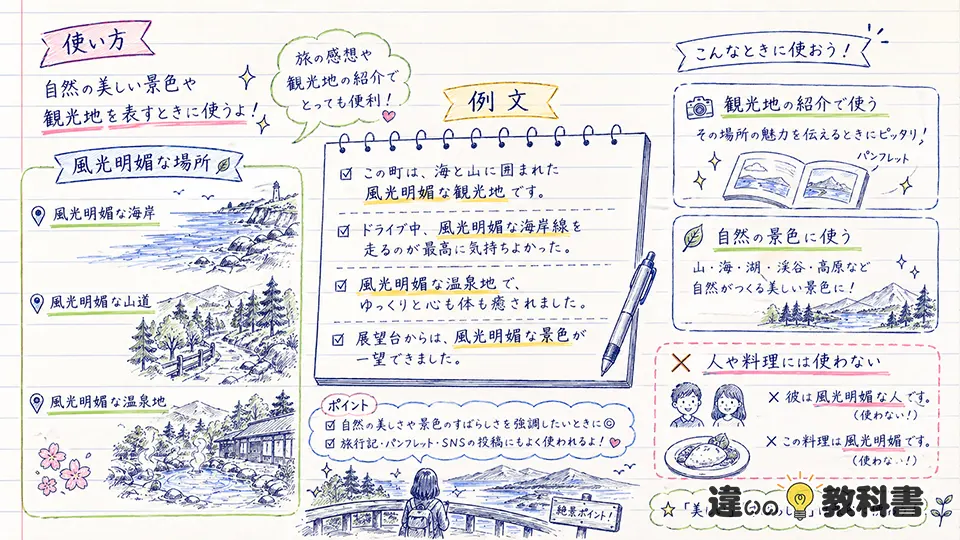 使い方
自然の美しい景色や
観光地を表すときに使うよ！
旅の感想や
観光地の紹介で
とっても便利！
風光明媚な場所
風光明媚な海岸
風光明媚な山道
風光明媚な温泉地
例文
この町は、海と山に囲まれた
風光明媚な観光地です。
ドライブ中、風光明媚な海岸線を
走るのが最高に気持ちよかった。
風光明媚な温泉地で、
ゆっくりと心も体も癒されました。
展望台からは、風光明媚な景色が
一望できました。
ポイント
自然の美しさや景色のすばらしさを強調したいときに◎
旅行記・パンフレット・SNSの投稿にもよく使われるよ！
絶景ポイント！
こんなときに使おう！
観光地の紹介で使う
その場所の魅力を伝えるときにピッタリ！
パンフレット
自然の景色に使う
山・海・湖・渓谷・高原など
自然がつくる美しい景色に！
× 人や料理には使わない
× 彼は風光明媚な人です。
（使わない！）
× この料理は風光明媚です。
（使わない！）
☆「美
違いの教科書